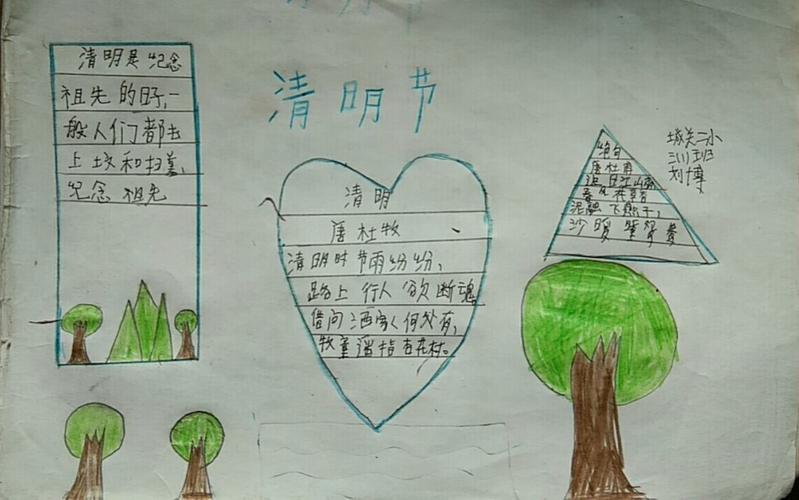 清明节
清明是纪念
祖先的日子,一
般人们都去
上坟和扫墓,
纪念祖先
清明
唐杜牧
清明时节雨纷纷,
路上行人欲断魂
借问酒家何处有,
牧童遥指杏花村。
绝句
唐杜甫
迟日江山丽
春风花草香
泥融飞燕子,
沙暖睡鸳鸯
城关二小
三(1)班
刘博